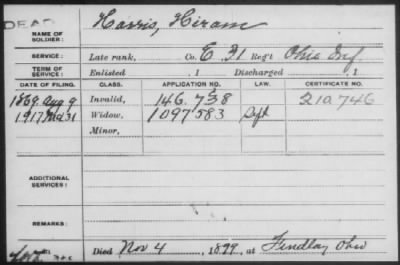 DEAD
NAME OF SOLDIER: Harris, Hiram
SERVICE: Late rank, Co. E 21 Reg't Ohio Inf
TERM OF SERVICE: Enlisted , 1 Discharged , 1
DATE OF FILING. CLASS. APPLICATION NO. LAW. CERTIFICATE NO.
1869 Aug 9 Invalid, 146.738 210.746
1917 31 Widow, 1097583
Minor,
ADDITIONAL SERVICES:
REMARKS:
Died Nov 4 , 1899, at Findlay Ohio